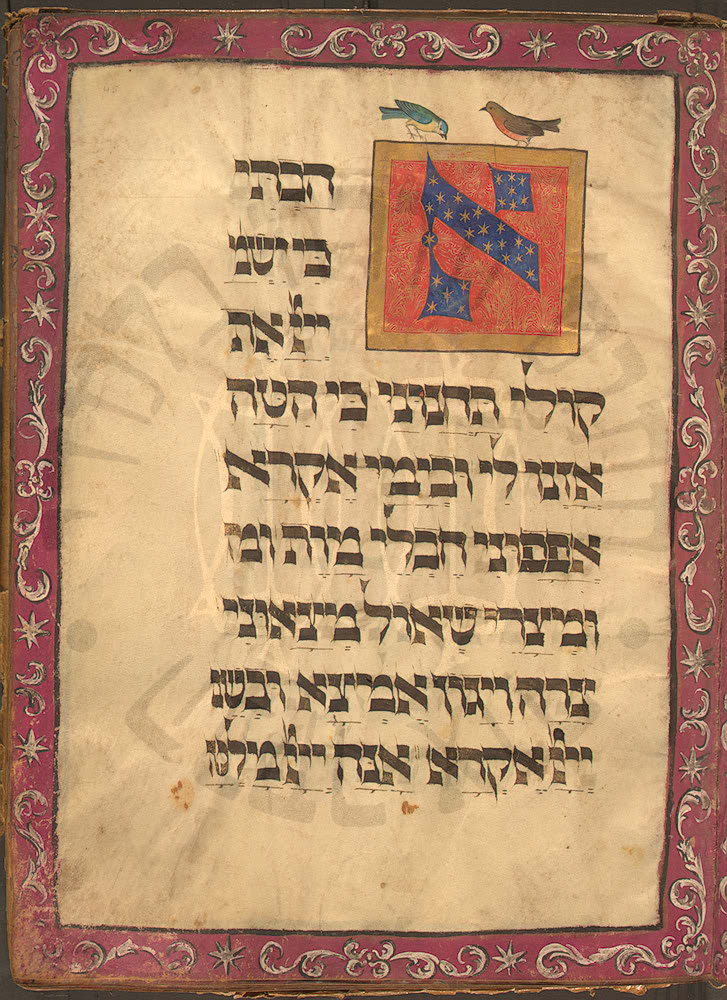 א
הבתי
כי ישמ
ייי את
קולי תחנוני כי הטה
אזנו לי ובימי אקרא
אפפוני חבלי מות ומ
ומצרי שאול מצאוני
צרה ויגון אמצא ובשם
ייי אקרא אנה ייי מלט